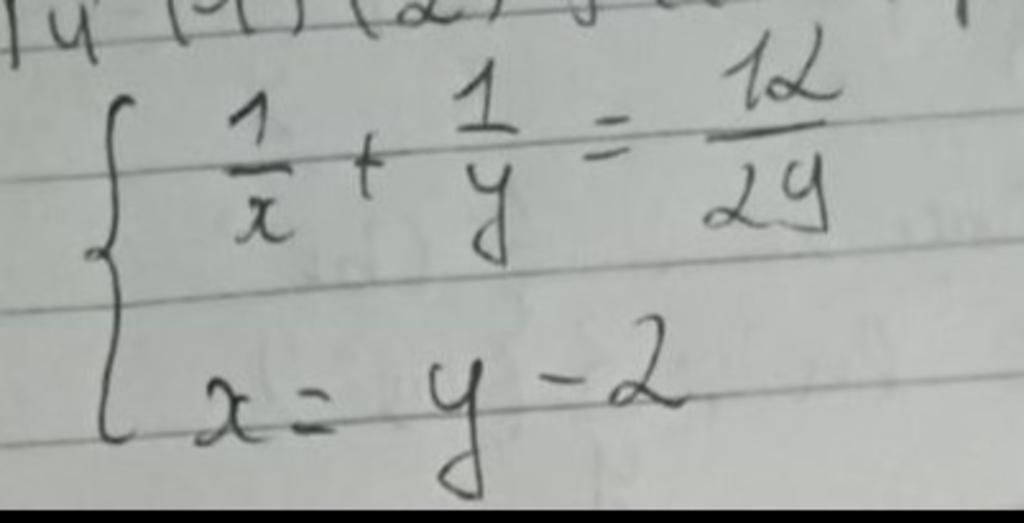 1/x + 1/y = 12/29
x = y - 2